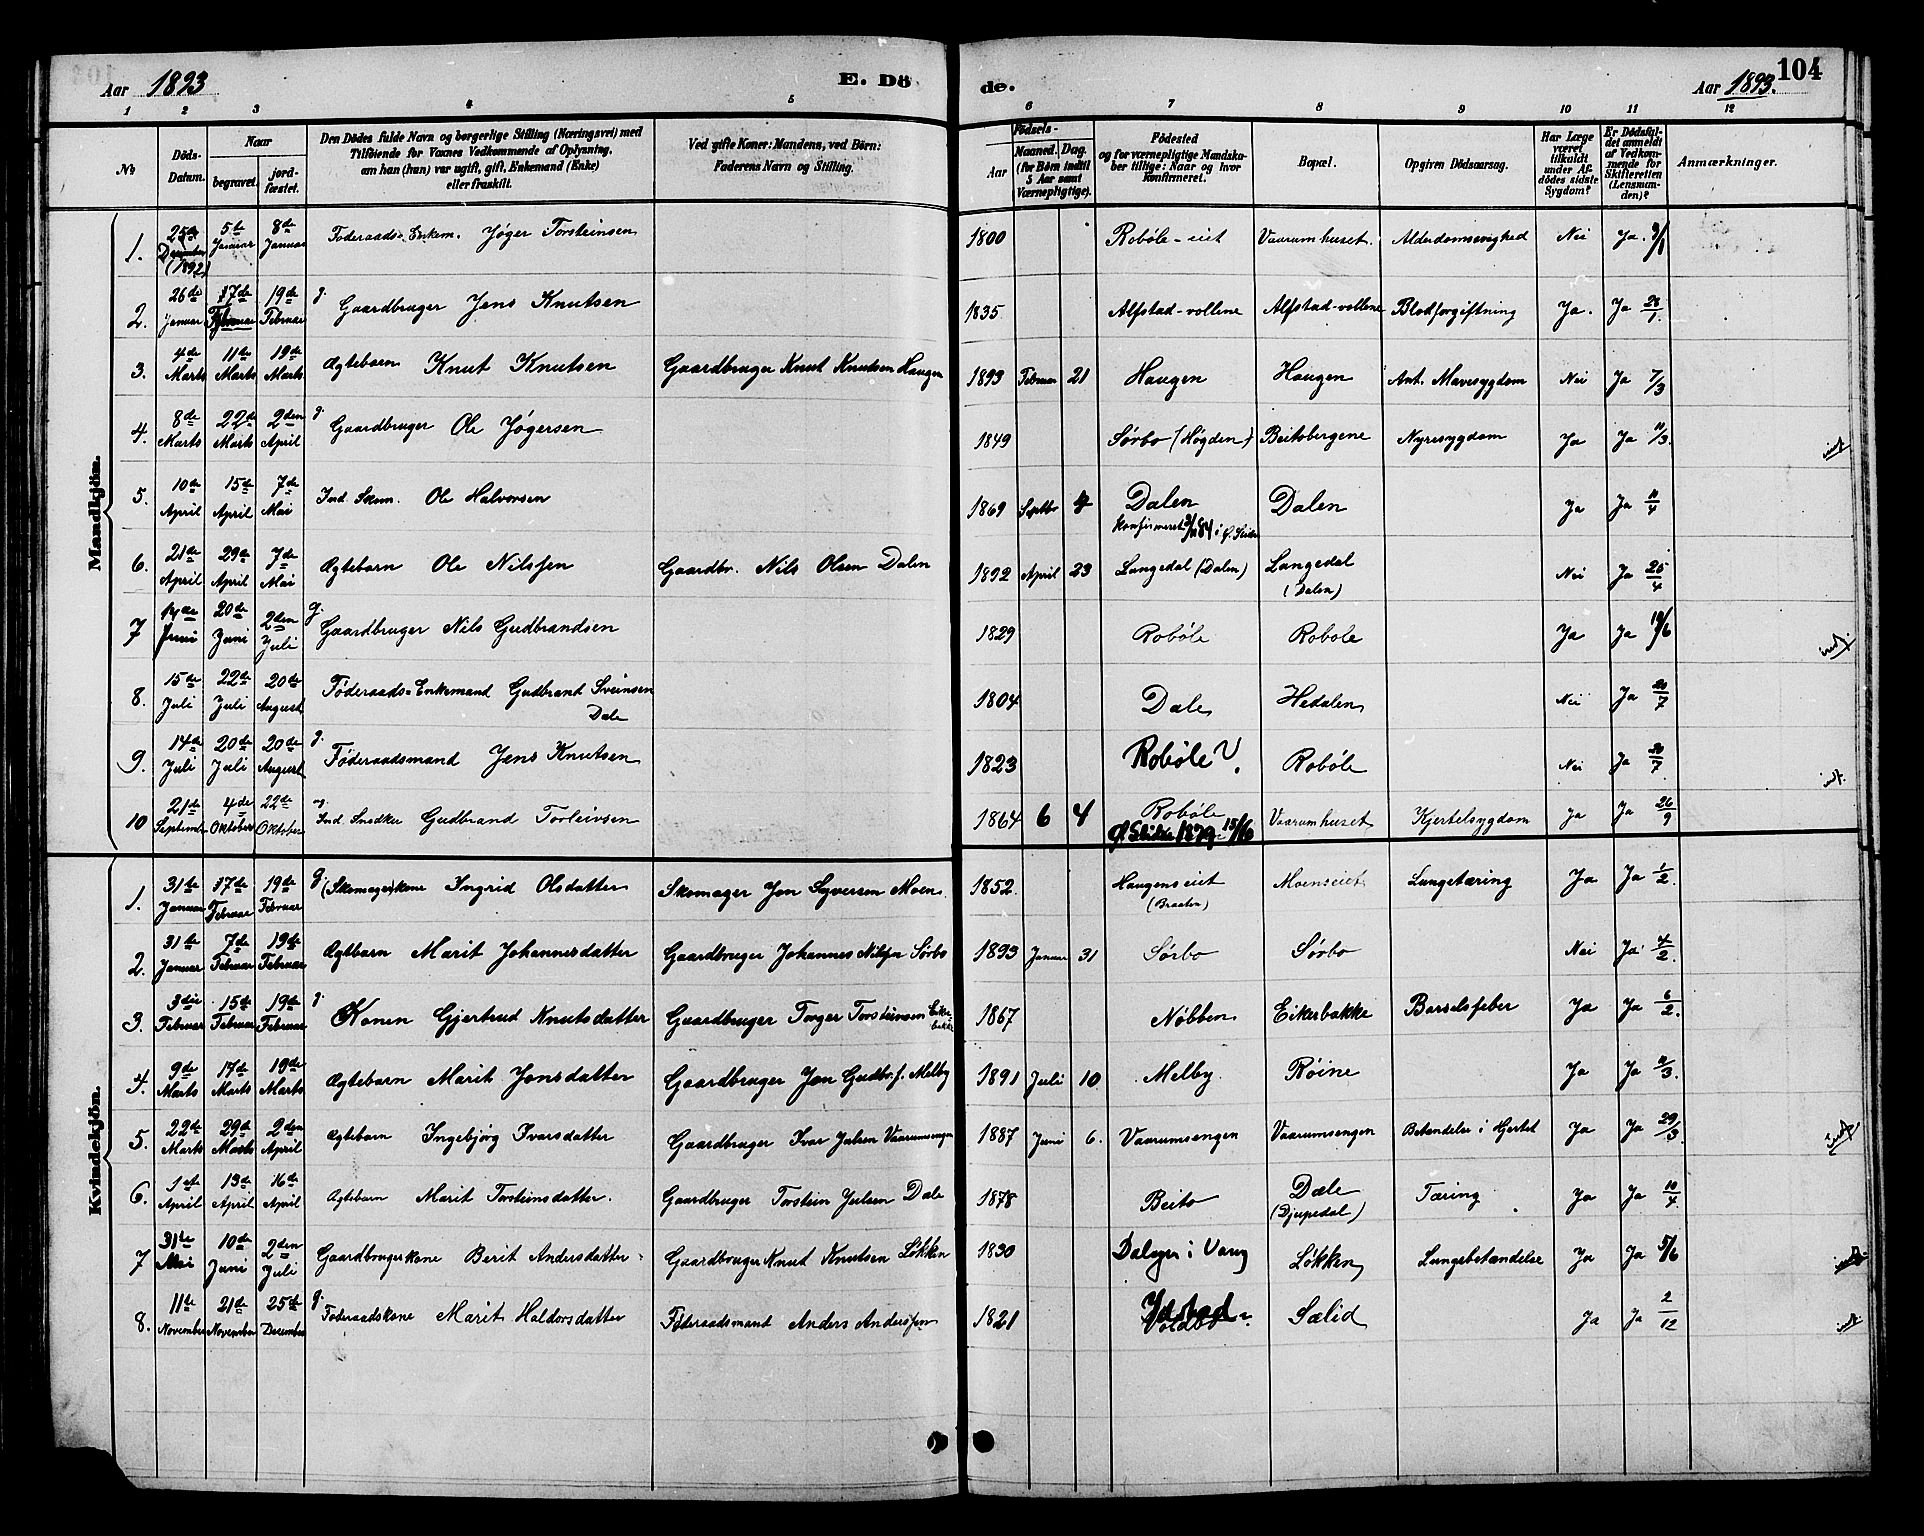 Aar 1893 E. Dö de. Aar 1893. 104
1 2 3 4 5 6 7 8 9 10 11 12
No
Döds-Datum.
Naar
begravet. jordfæstet.
Den Dödes fulde Navn og borgerlige Stilling (Næringsvei) med
Tilföiende for Voxnes Vedkommende af Oplysning,
om han (hun) var ugift, gift, Enkemand (Enke)
eller fraskilt.
Ved gifte Koner: Mandens, ved Börn:
Faderens Navn og Stilling.
Födsels-
Aar
Maaned. Dag.
(for Börn indtil
5 Aar samt
Værnepligtige).
Födested
og for værnepligtige Mandska-
ber tillige: Naar og hvor
konfirmeret.
Bopæl.
Opgiven Dödsaarsag.
Har Læge
været
tilkaldt
under Af-
dödes sidste
Sygdom?
Er Dödsfal-
det anmeldt
af Vedkom-
mende for
Skifteretten
(Lensman-
den)?
Anmærkninger.
Mandkjön.
1. 25de December (1892) 5te Januar 8de Januar Föderaads-Enkem. Jøger Torsteinsen 1800 Robøle-eiet Vaarumhuset. Alderdomssvaghed Nei Ja. 9/1
2. 26de Januar 17de Februar 19de Februar g. Gaardbruger Jens Knutsen 1835 Alfstad-vollene Alfstad-vollene Blodforgiftning Ja. Ja 28/1.
3. 4de Marts 11te Marts 19de Marts Ægtebarn Knut Knutsen Gaardbruger Knut Knutsen Haugen 1893 Februar 21 Haugen Haugen Ant. Mavesygdom Nei Ja 7/3
4. 8de Marts 22de Marts 2den April g. Gaardbruger Ole Jøgersen 1849 Sørbo (Høgden) Beitobergene Nyresygdom Ja Ja 11/3.
5. 10de April 15de April 7de Mai Ind. Skom. Ole Halvorsen 1869 Septbr Dalen Dalen Ja Ja 11/4
konfirmeret 84 i Ø. Slidre
6. 21de April 29de April 7de Mai Ægtebarn Ole Nilssen Gaardbr. Nils Olsen Dalen 1892 April 23 Langedal (Dalen) Langedal (Dalen) Nei Ja 25/4
7 14de Juni 20de Juni 2den Juli g. Gaardbruger Nils Gudbrandsen 1829 Robøle Robøle Ja Ja 19/6
8. 15de Juli 22de Juli 20de August Föderaads-Enkemand Gudbrand Sveinsen Dale 1804 Dale Hedalen Nei Ja 20/7
9. 14de Juli 20de Juli 20de August g. Föderaadsmand Jens Knutsen 1823 Robøle V. Robøle Nei Ja 20/7
10 21de September 4de Oktober 22de Oktober ug. Ind. Snedker Gudbrand Torleivsen 1864 6 4 Robøle Vaarumhuset Kjertelsygdom Ja Ja 26/9
Ø Slidre 1879 15/6
Kvindekjön.
1. 31te Januar 17de Februar 19de Februar g. (Skomager)kone Ingrid Olsdatter Skomager Jon Syversen Moen. 1852. Haugenseiet (Braaten) Moenseiet Lungetæring Ja Ja 1/2.
2. 31te Januar 7de Februar 19de Februar Ægtebarn Marit Johannesdatter Gaardbruger Johannes Nilssn Sørbo 1893 Januar 31 Sørbo Sørbo Nei Ja 4/2.
3. 3die Februar 15de Februar 19de Februar g. Konen Gjertrud Knutsdatter Gaardbruger Torger Torsteinsen Eikerbakke 1867 Nøbben Eikerbakke Barselsfeber Ja Ja 6/2.
4. 9de Marts 17de Marts 19de Marts Ægtebarn Marit Jonsdatter Gaardbruger Jon Gudbr.s. Melby 1891 Juli 10 Melby Røine Ja Ja 11/3.
5. 22de Marts 29de Marts 2den April Ægtebarn Ingebjørg Ivarsdatter Gaardbruger Ivar Julsen Vaarumsengen 1887 Juni 6. Vaarumsengen Vaarumsengen Betændelse i Hjertet Ja Ja 29/3.
6. 1ste April 13de April 16de April Ægtebarn Marit Torsteinsdatter. Gaardbruger Torstein Julsen Dale 1878 Beito Dale (Djupedal) Tæring Ja Ja 10/4.
7 31te Mai 10de Juni 2den Juli Gaardbrugerkone Berit Andersdatter Gaardbruger Knut Knutsen Løkken 1830 i Vang Løkken Lungebetændelse Ja Ja 5/6
8. 11te November 21de November 25de December g. Föderaadskone Marit Haldorsdatter Föderaadsmand Anders Anderssen 1821 Sælid Ja Ja 2/12